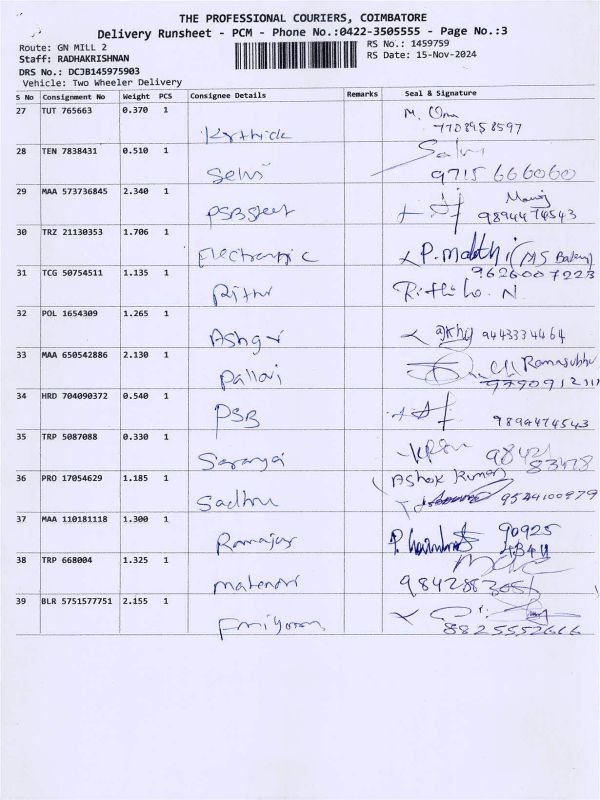 THE PROFESSIONAL COURIERS, COIMBATORE
Delivery Runsheet - PCM - Phone No.:0422-3505555 - Page No.:3
Route: GN MILL 2
RS No.: 1459759
Staff: RADHAKRISHNAN
RS Date: 15-Nov-2024
DRS No.: DCJB145975903
Vehicle: Two Wheeler Delivery
S No Consignment No Weight PCS Consignee Details Remarks Seal & Signature
27 TUT 765663 0.370 1
7708958597
28 TEN 7838431 0.510 1
Selvi 9715 666060
29 MAA 573736845 2.340 1 Manoj
PSB Steel 9894474543
30 TRZ 21130353 1.706 1
Electronic P. Malathi (MS Bakery)
9626007223
31 TCG 50754511 1.135 1
Rithi Rithika. N
32 POL 1654309 1.265 1
9443334464
33 MAA 650542886 2.130 1
Pallavi
34 HRD 704090372 0.540 1
PSB 9894474543
35 TRP 5087088 0.330 1
98421
83478
36 PRO 17054629 1.185 1 Ashok Kumar
Sadhu 9524100979
37 MAA 110181118 1.300 1 90925
Ramajay
38 TRP 668004 1.325 1
39 BLR 5751577751 2.155 1
8825552666